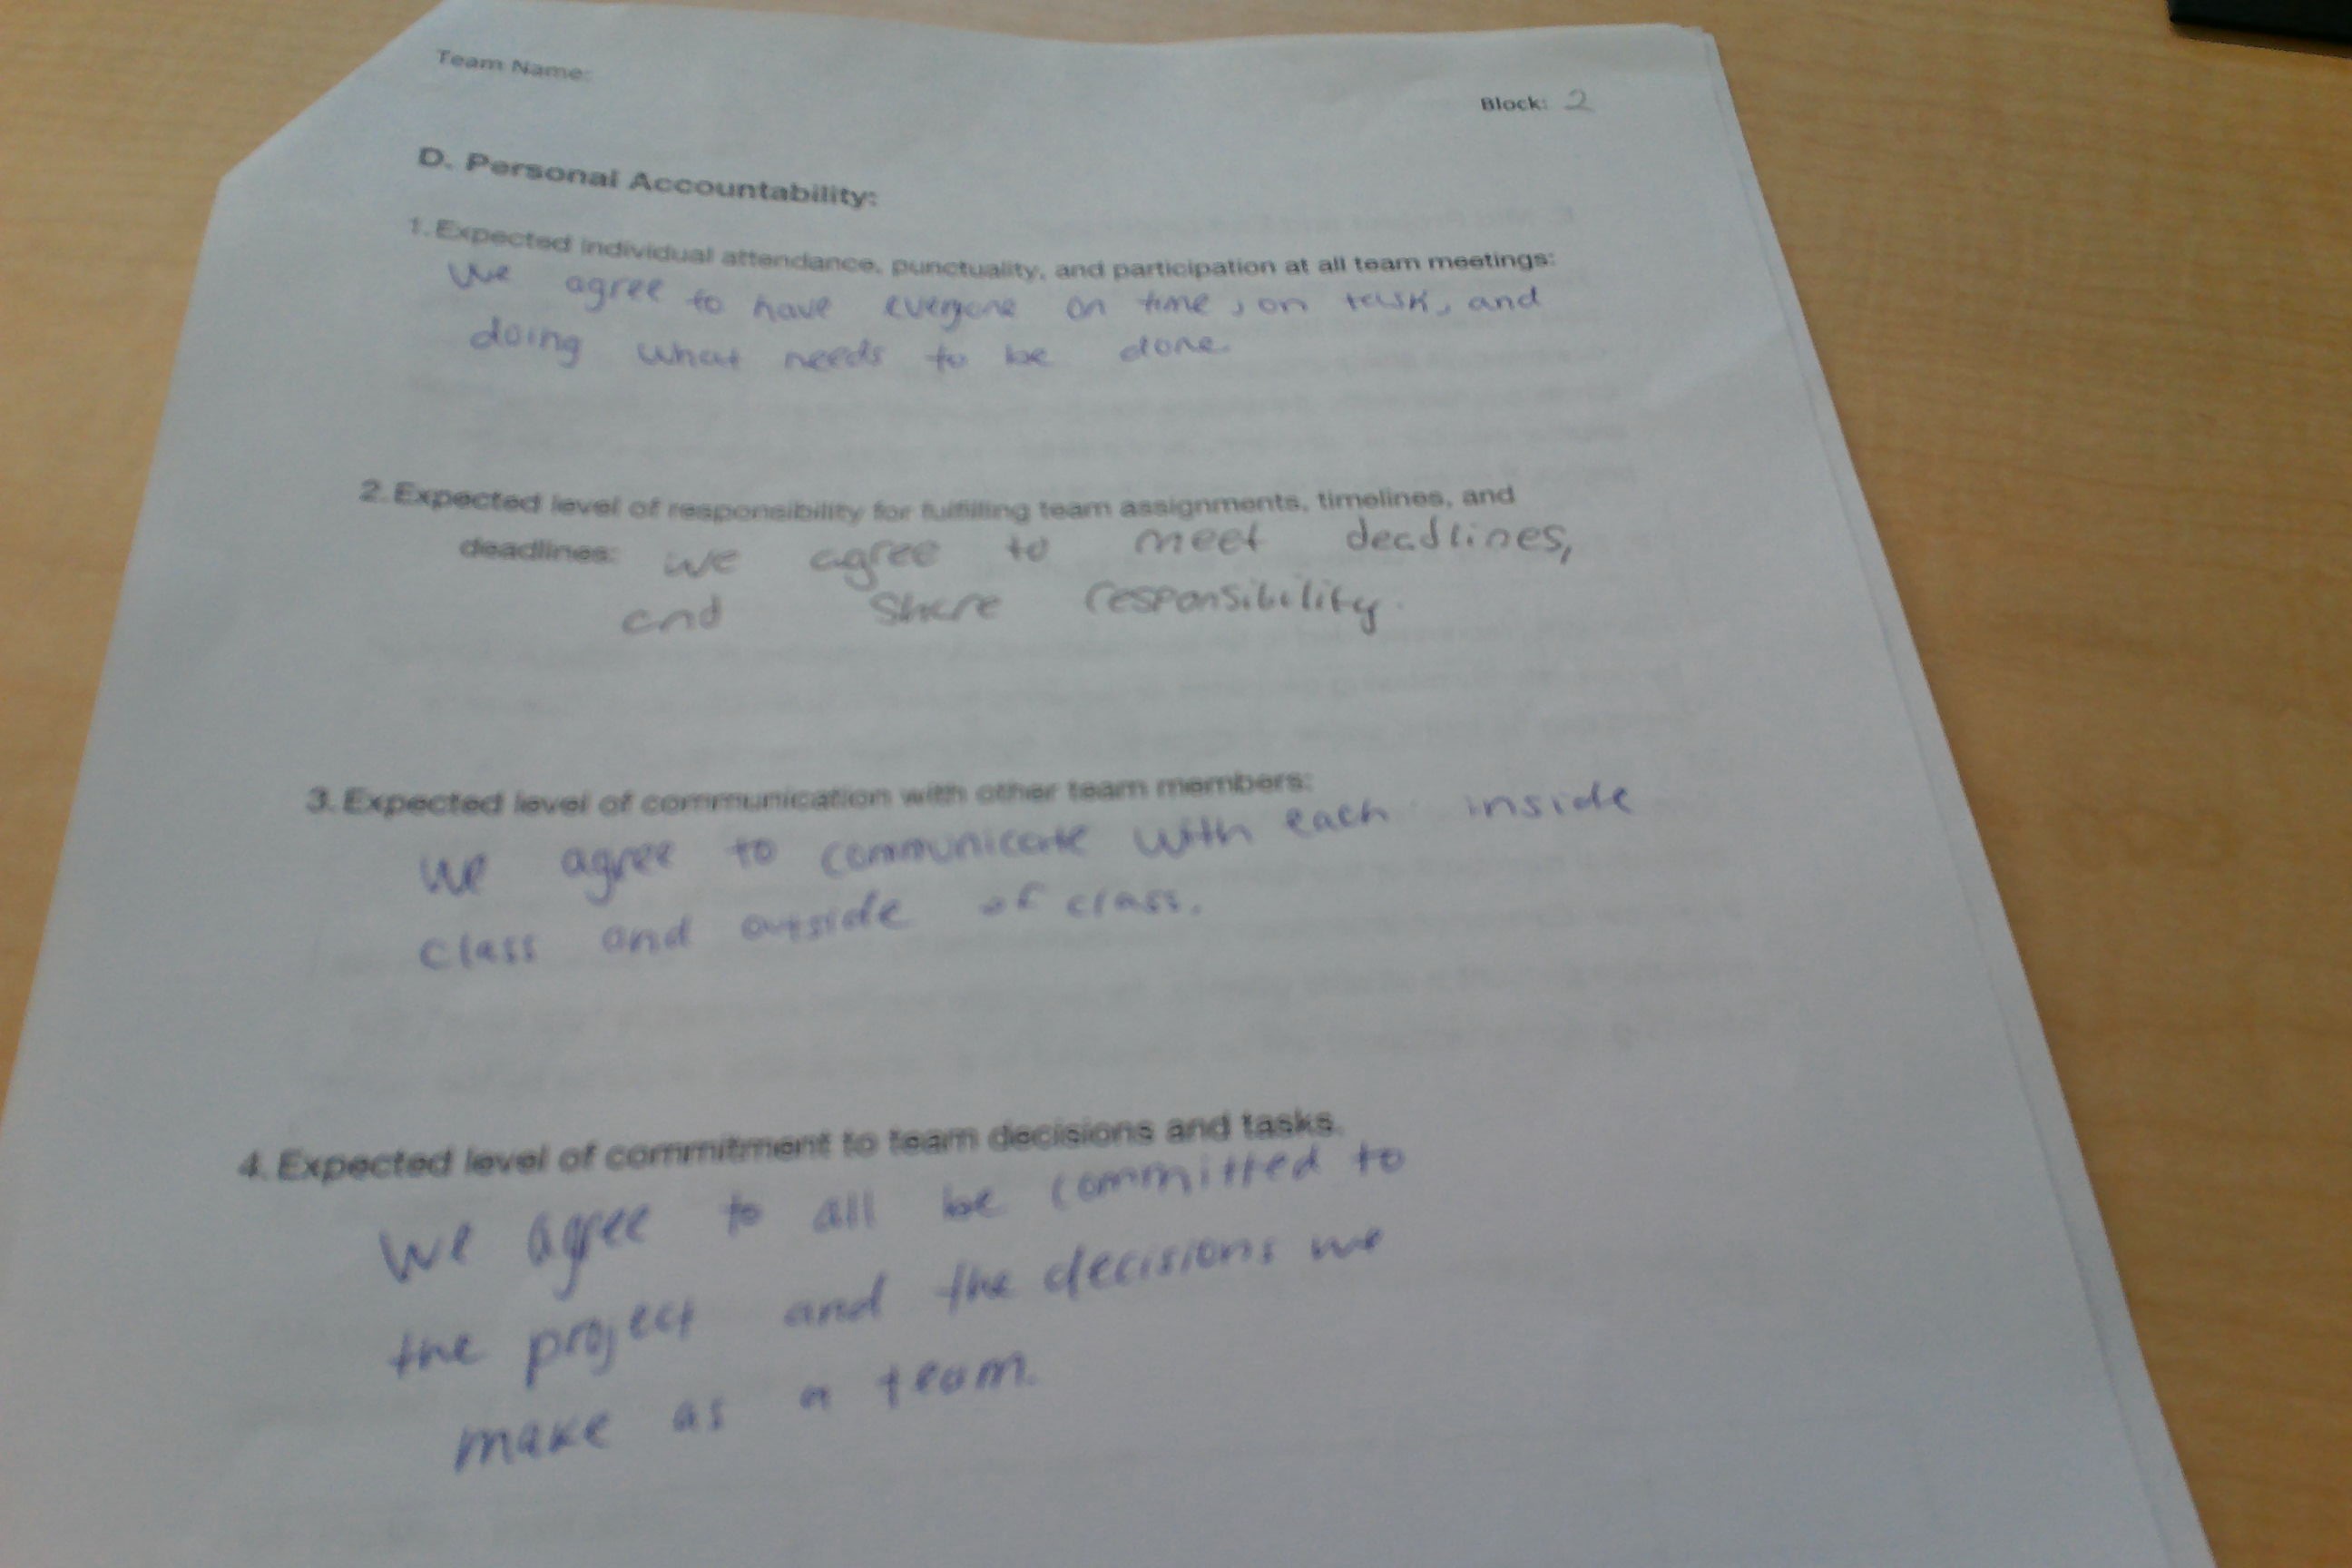 Team Name:
Block: 2
D. Personal Accountability:
1. Expected individual attendance, punctuality, and participation at all team meetings:
We agree to have everyone on time, on task, and
doing what needs to be done.
2. Expected level of responsibility for fulfilling team assignments, timelines, and
deadlines: we agree to meet deadlines,
and share responsibility.
3. Expected level of communication with other team members:
We agree to communicate with each inside
class and outside of class.
4. Expected level of commitment to team decisions and tasks.
We agree to all be committed to
the project and the decisions we
make as a team.